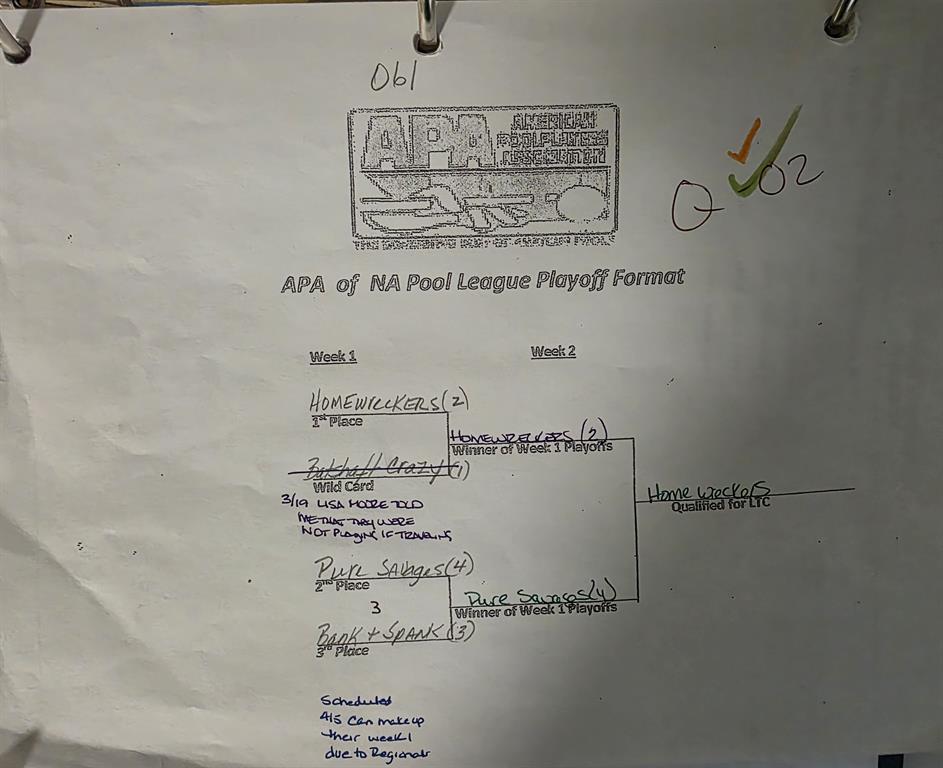 061
APA
AMERICAN
POOLPLAYERS
ASSOCIATION
Q 02
APA of NA Pool League Playoff Format
Week 1
Week 2
HOMEWRECKERS (2)
1st Place
HOMEWRECKERS (2)
Winner of Week 1 Playoffs
Crazy (1)
Wild Card
Home wreckers
Qualified for LTC
3/19 LISA MOORE TOLD
ME THAT THEY WERE
NOT PLAYING IF TRAVELING
Pure Savages (4)
2nd Place
Pure Savages (4)
Winner of Week 1 Playoffs
3
BANK + SPANK (3)
3rd Place
Scheduled
4/5 Can make up
their week 1
due to Regionals